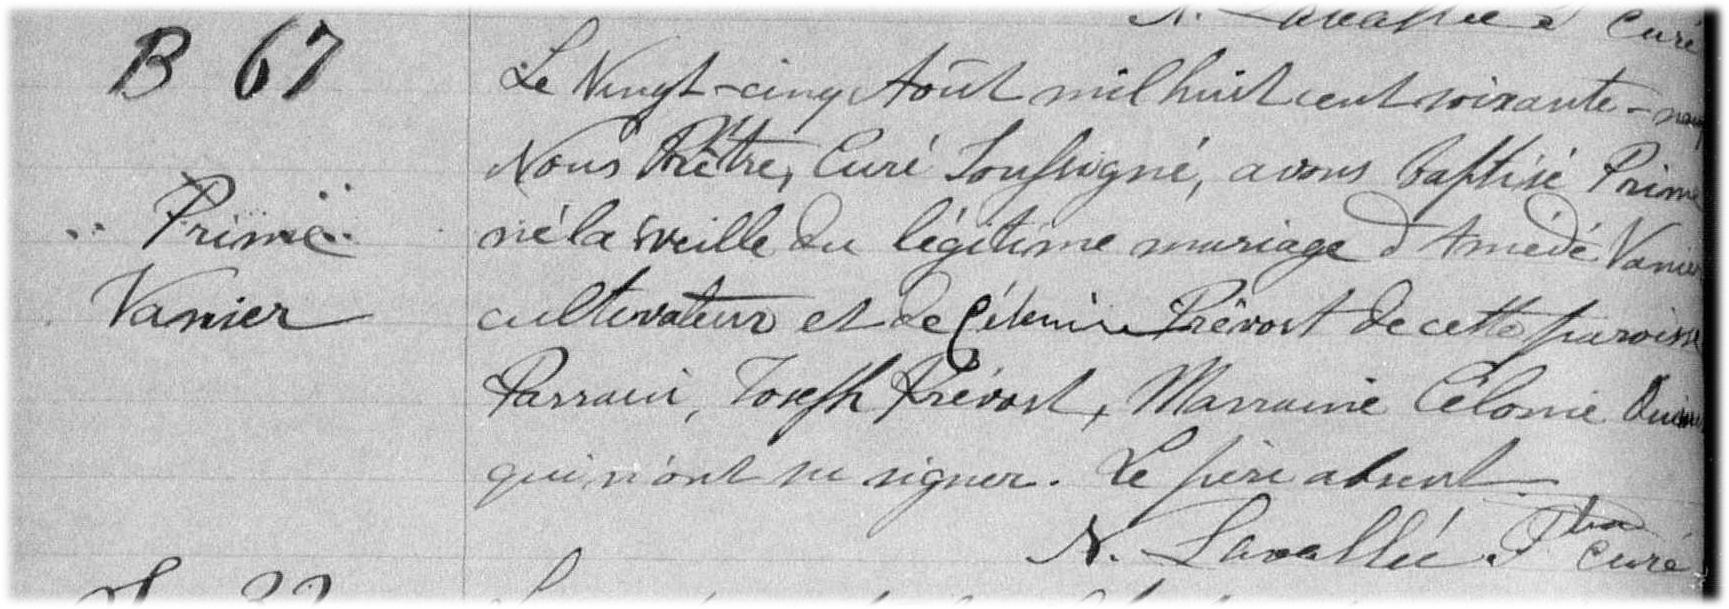 N. Lavallée Ptre Curé
B 67
Le Vingt-cinq Août mil huit cent soixante-neuf
Nous Prêtre, Curé Soussigné, avons baptisé Prime
né la veille du légitime mariage d'Amédé Vanier
Prime
Vanier
cultivateur et de Prévost de cette paroisse
Parrain, Joseph Prévost, Marraine Célonie
qui n'ont su signer. Le père absent
N. Lavallée Ptre Curé